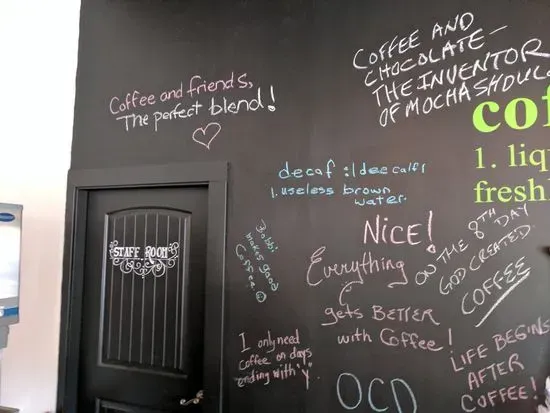 Coffee and friends,
The perfect blend!
COFFEE AND
CHOCOLATE—
THE INVENTOR
OF MOCHA SHOUL
cof
1. liq
fresh
decaf :|deecalf|
1. useless brown
water.
STAFF ROOM
Bobbi
makes good
Coffee.
NICE!
Everything
gets BETTER
with Coffee!
ON THE 8TH DAY
GOD CREATED
COFFEE
I only need
coffee on days
ending with "y".
OCD
LIFE BEGINS
AFTER
COFFEE!